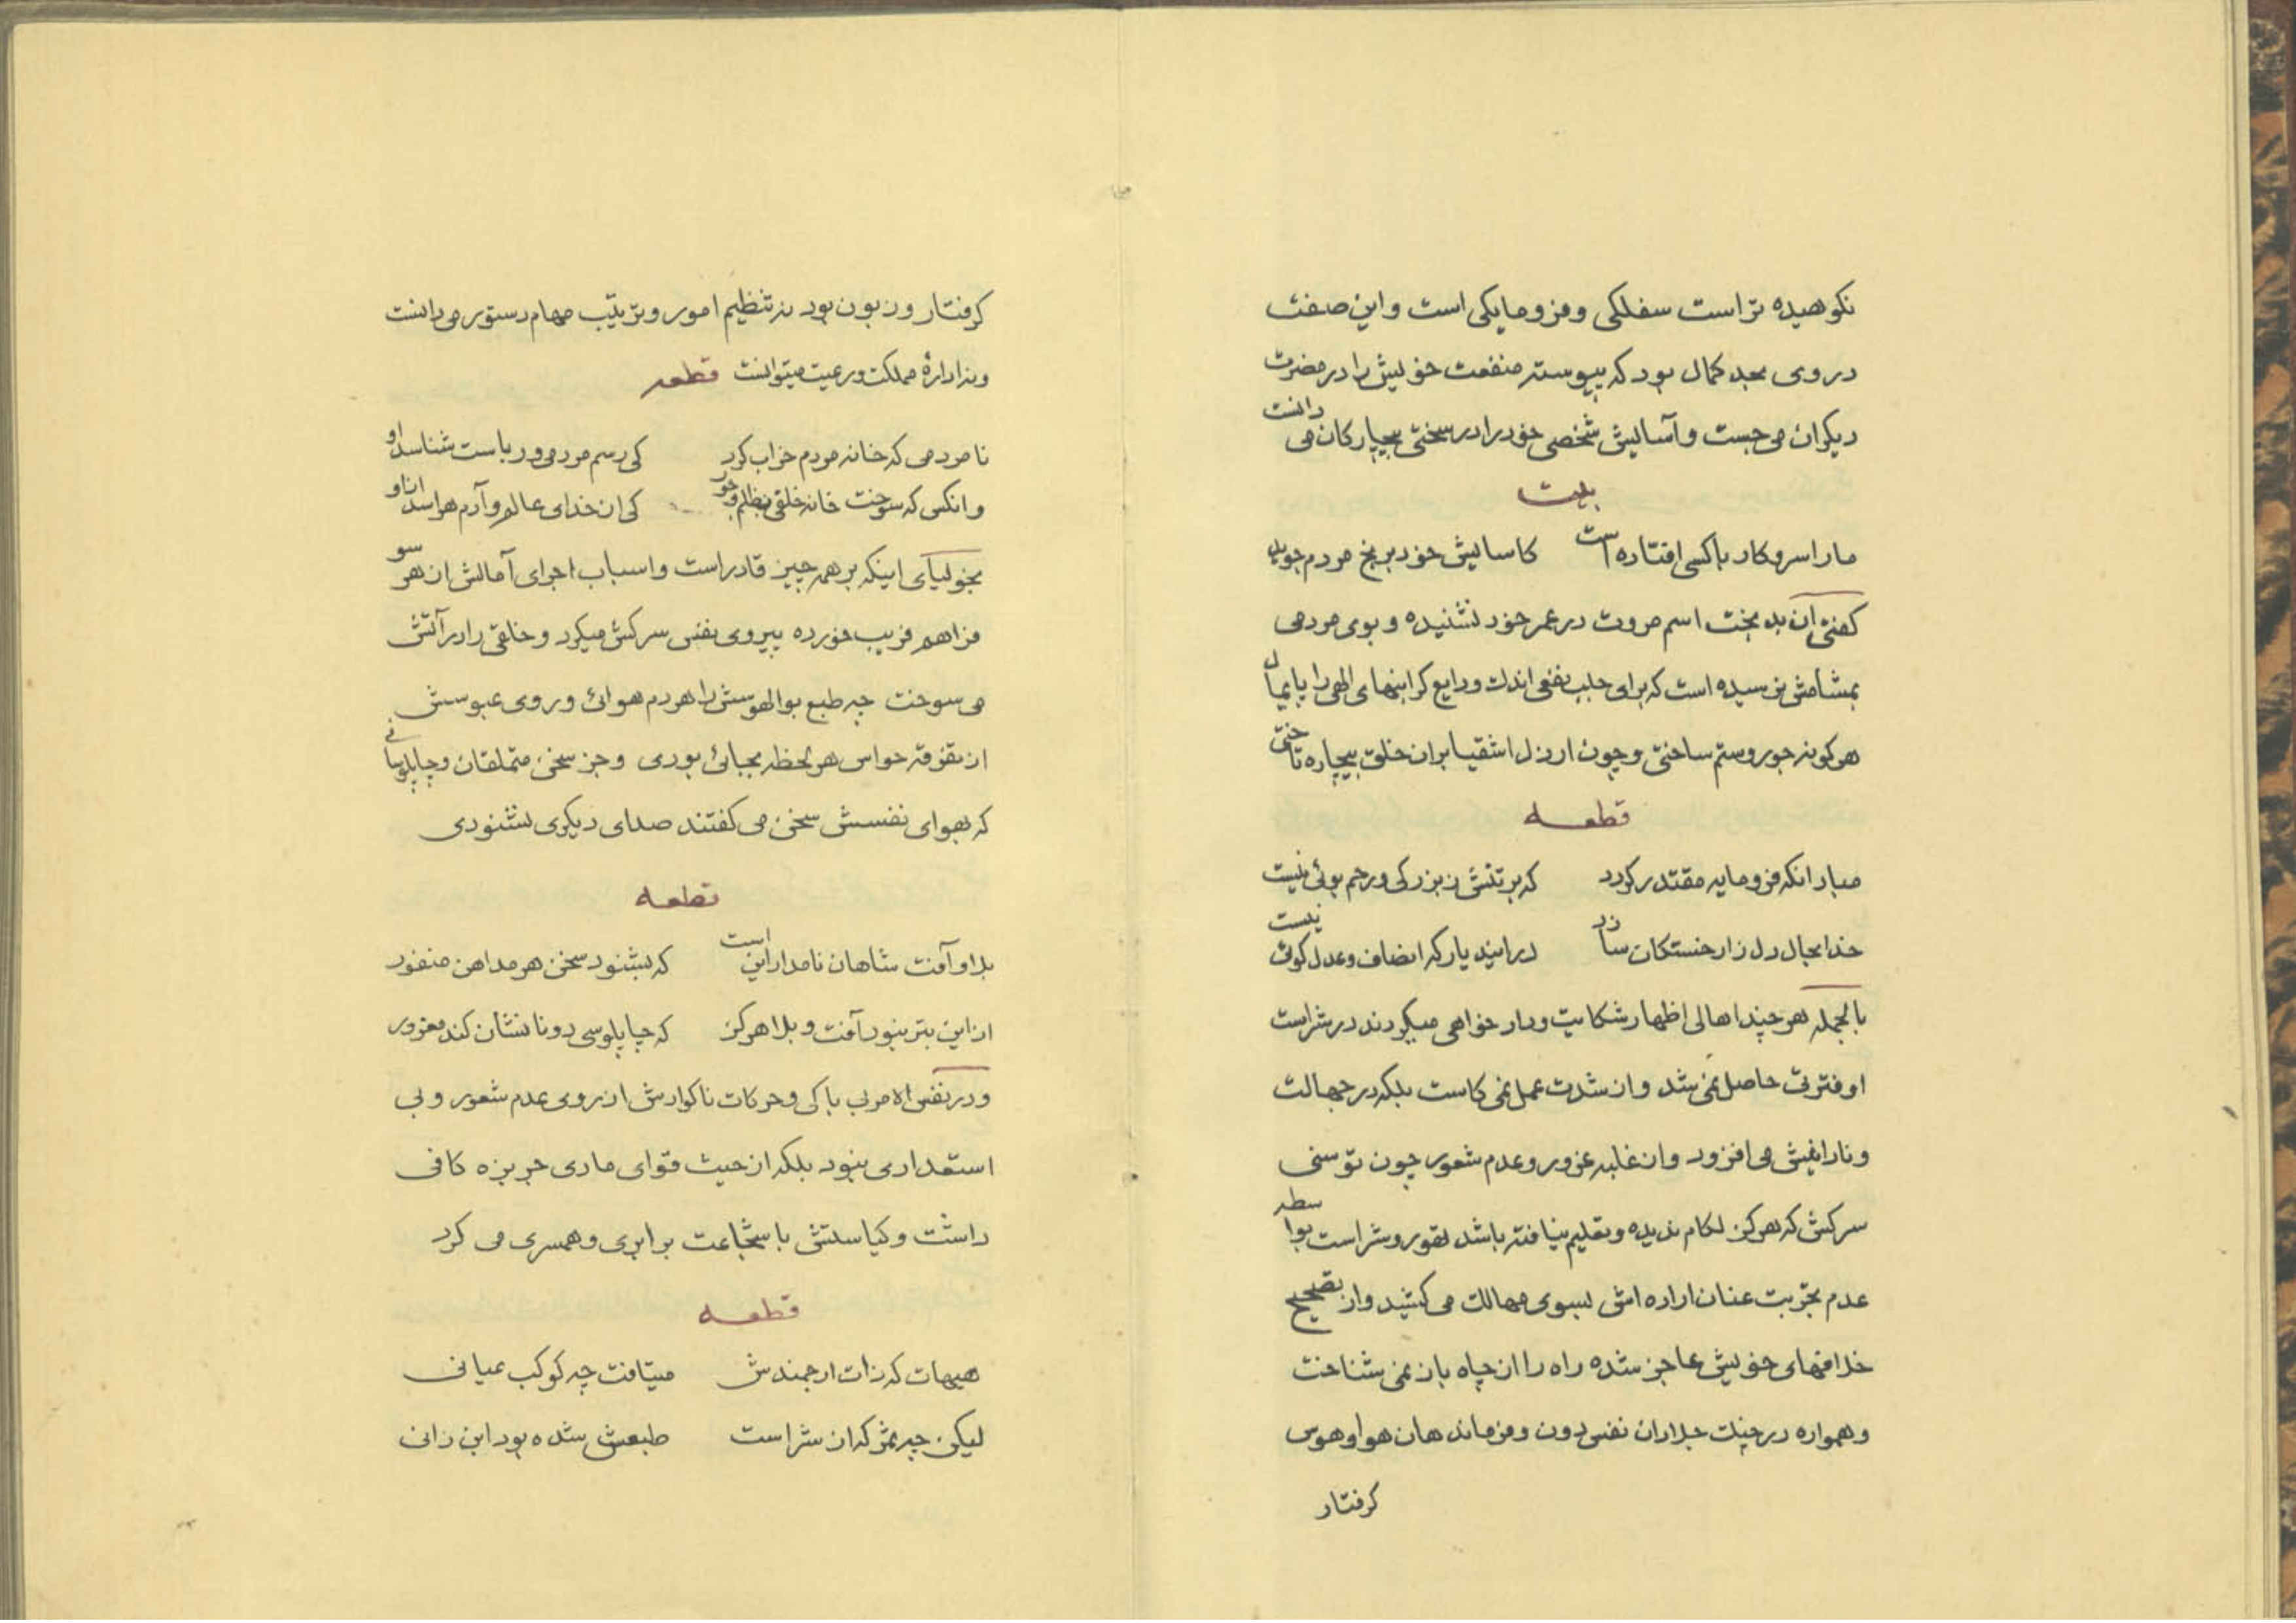 نکوهیده تر است سفلکی و فرومایکی است و این صفت
در وی بحد کمال بود که پیوسته منفعت خویش را در مضرت
دیکران می جست و آسایش شخصی خود را در سختی بیچارکان می دانست
بیت
ما را سر و کار با کسی افتاده است کاسایش خود برنج مردم جوید
کفتی آن بد بخت اسم مروت در عمر خود نشنیده و بوی مردمی
بمشامش نرسیده است که برای جلب نفعی اندک ودایع کرانبهای الهی را پایمال
هر کونه جور و ستم ساختی و چون ارذل اشقیا بر ان خلق بیچاره تاختی
قطعه
مباد انکه فرومایه مقتدر کردد که بر تنش ز بزرکی و رحم بوئی نیست
خدا بحال دل زار خستکان سازد در ایند یار که انصاف و عدل کوئی نیست
بالجمله هر چند اهالی اظهار شکایت و داد خواهی میکردند در شراست
او فترتی حاصل نمی شد و از شدت عمل نمی کاست بلکه در جهالت
و نادانیش می افزود و از غلبه غرور و عدم شعور چون توسنی
سرکش که هرکز لکام ندیده و تعلیم نیافته باشد تهور و شراست بواسطه
عدم تجربت عنان اراده اش بسوی مهالک می کشید و از تصحیح
خلافهای خویش عاجز شده راه را از چاه باز نمی شناخت
و همواره در چنک جلادان نفس دون و فرماندهان هوا و هوس
کرفتار
کرفتار و زبون بود نه تنظیم امور و ترتیب مهام دستور می دانست
و نه ادارهٔ مملکت و رعیت میتوانست قطعه
نامردمی که خانه مردم خراب کرد کی رسم مردمی و ریاست شناسد او
وانکس که سوخت خانه خلقی بظلم و جور کی از خدای عالم و آدم هراسد او
بخولیای اینکه بر همه چیز قادر است و اسباب اجرای آمالش از هر سو
فراهم فریب خورده پیروی نفس سرکش میکرد و خلقی را در آتش
می سوخت چه طبع بوالهوسش را هر دم هوائی و روی عبوسش
از تفرقه حواس هر لحظه بجائی بودی و جز سخن متملقان و چاپلوسانی
که بهوای نفسش سخن می کفتند صدای دیکری نشنودی
قطعه
بلا و آفت شاهان نامدار این است که بشنود سخن هر مداهن منفور
از این بتر نبود آفت و بلا هرکز که چاپلوسی دونانشان کند مغرور
و در نفس الامر بی باکی و حرکات ناکوارش از روی عدم شعور و بی
استعدادی نبود بلکه از حیث قوای مادی جربزه کافی
داشت و کیاستش با شجاعت برابری و همسری می کرد
قطعه
هیهات که ذات ارجمندش میتافت چه کوکب عیانی
لیکن چه ثمر که از شراست طبعش شده بود ابن زانی